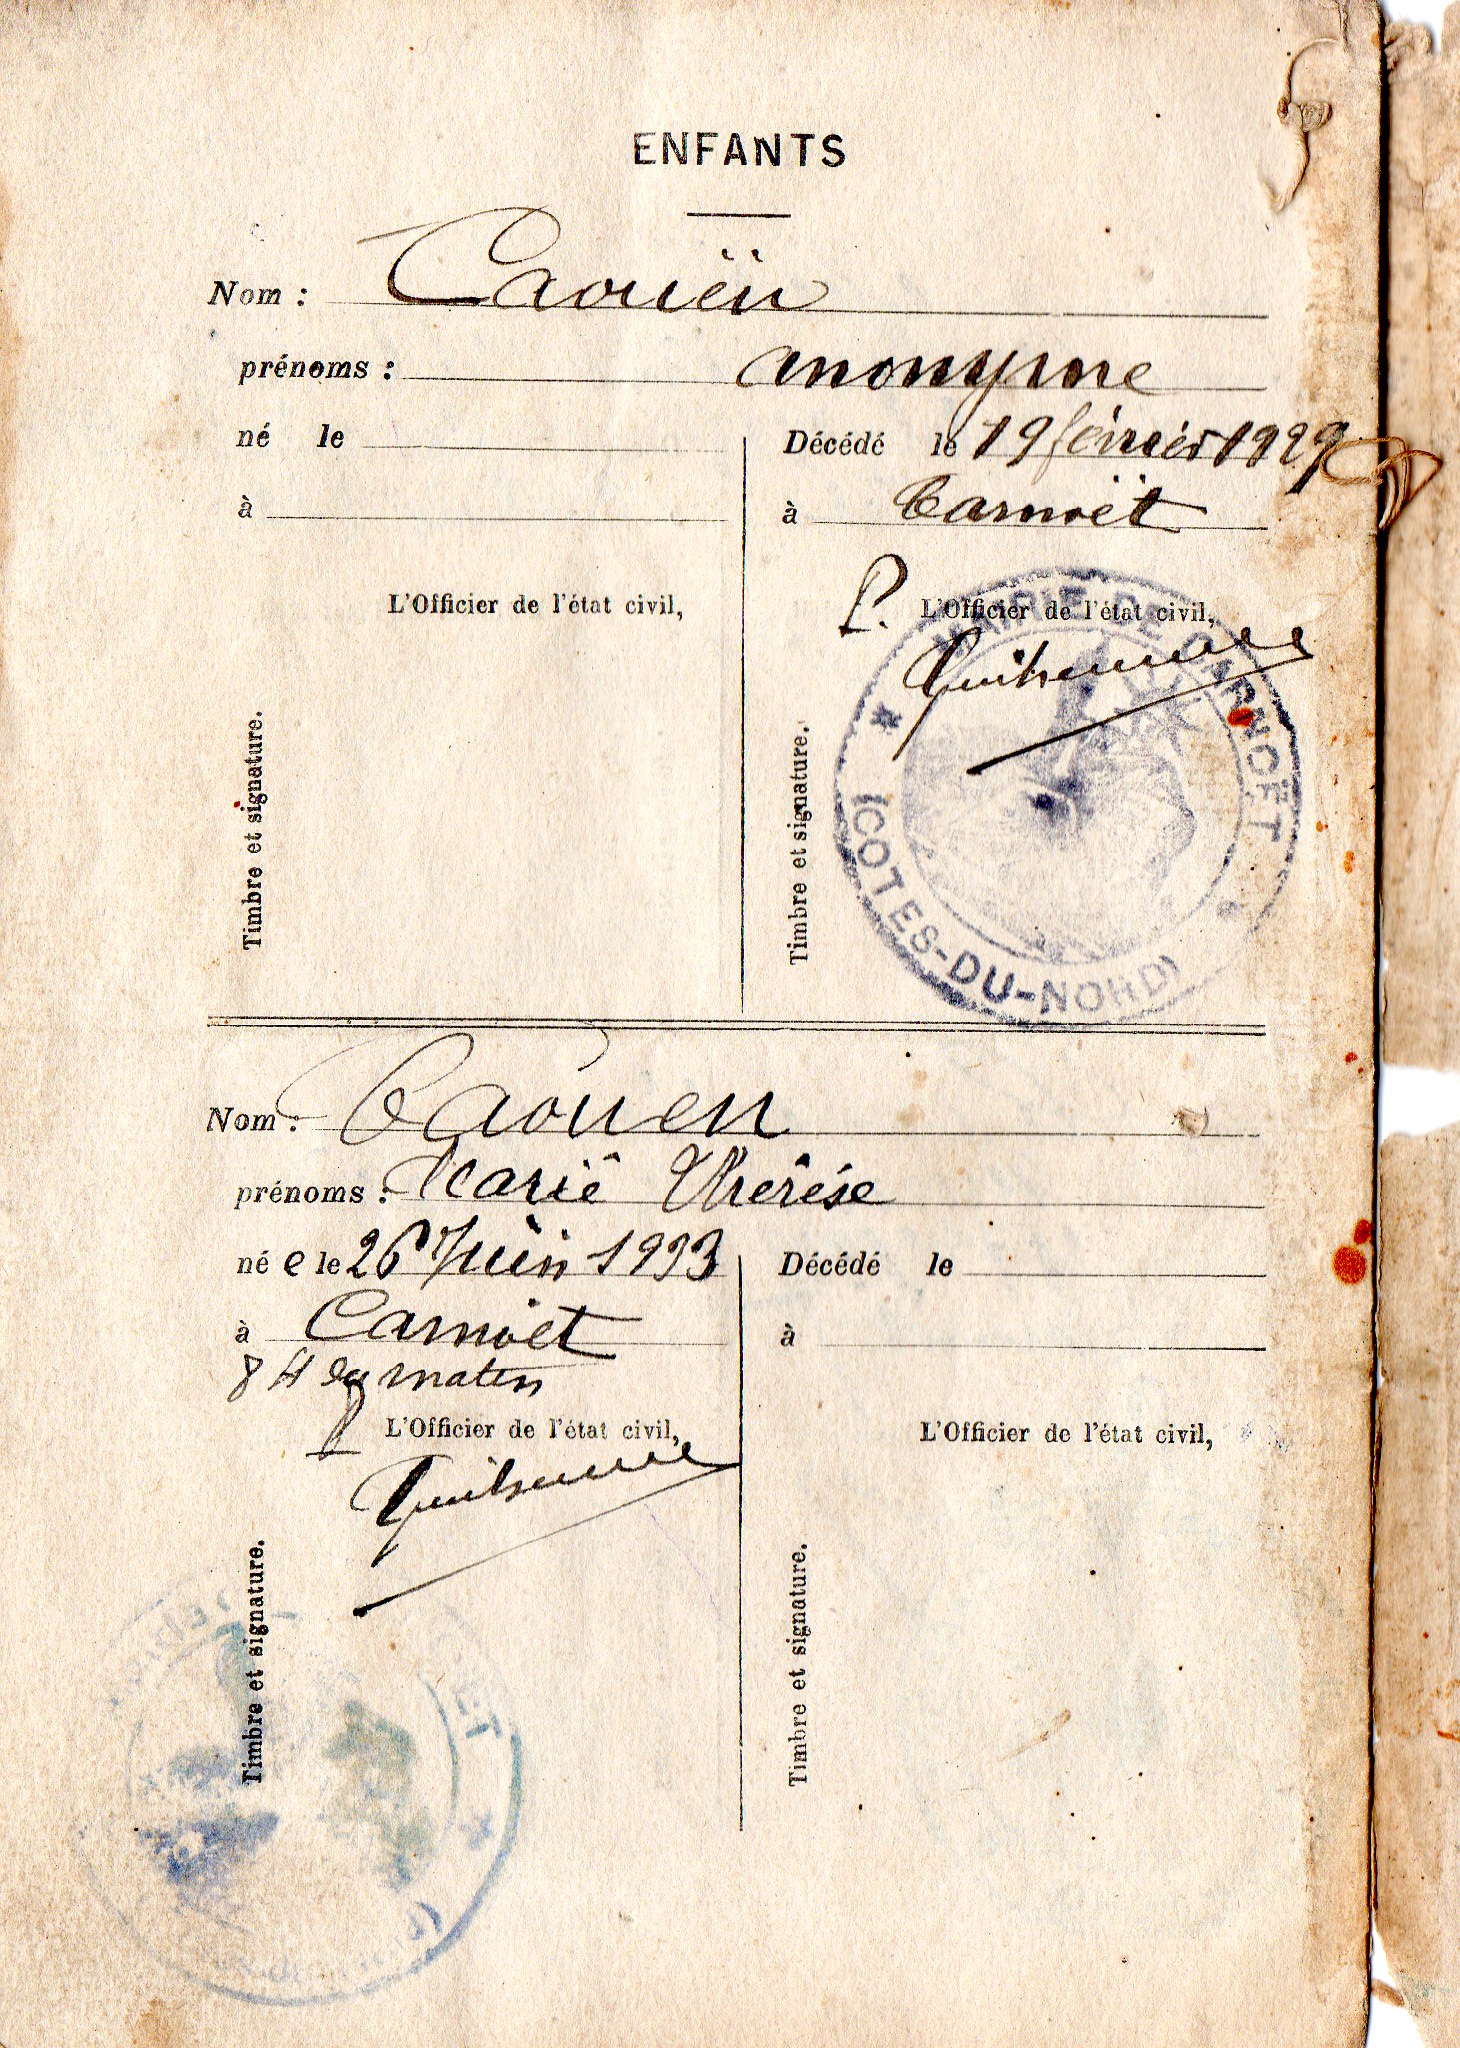 ENFANTS
Nom : Caouën
prénoms : anonyme
né le
Décédé le 19 février 1929
à
à Carnoët
L'Officier de l'état civil,
P. L'Officier de l'état civil,
Timbre et signature.
Timbre et signature.
MAIRIE DE CARNOËT
(COTES-DU-NORD)
Nom : Caouen
prénoms : Marie Thérèse
né e le 26 Juin 1933
Décédé le
à Carnoët
à
8 H du matin
P L'Officier de l'état civil,
L'Officier de l'état civil,
Timbre et signature.
Timbre et signature.